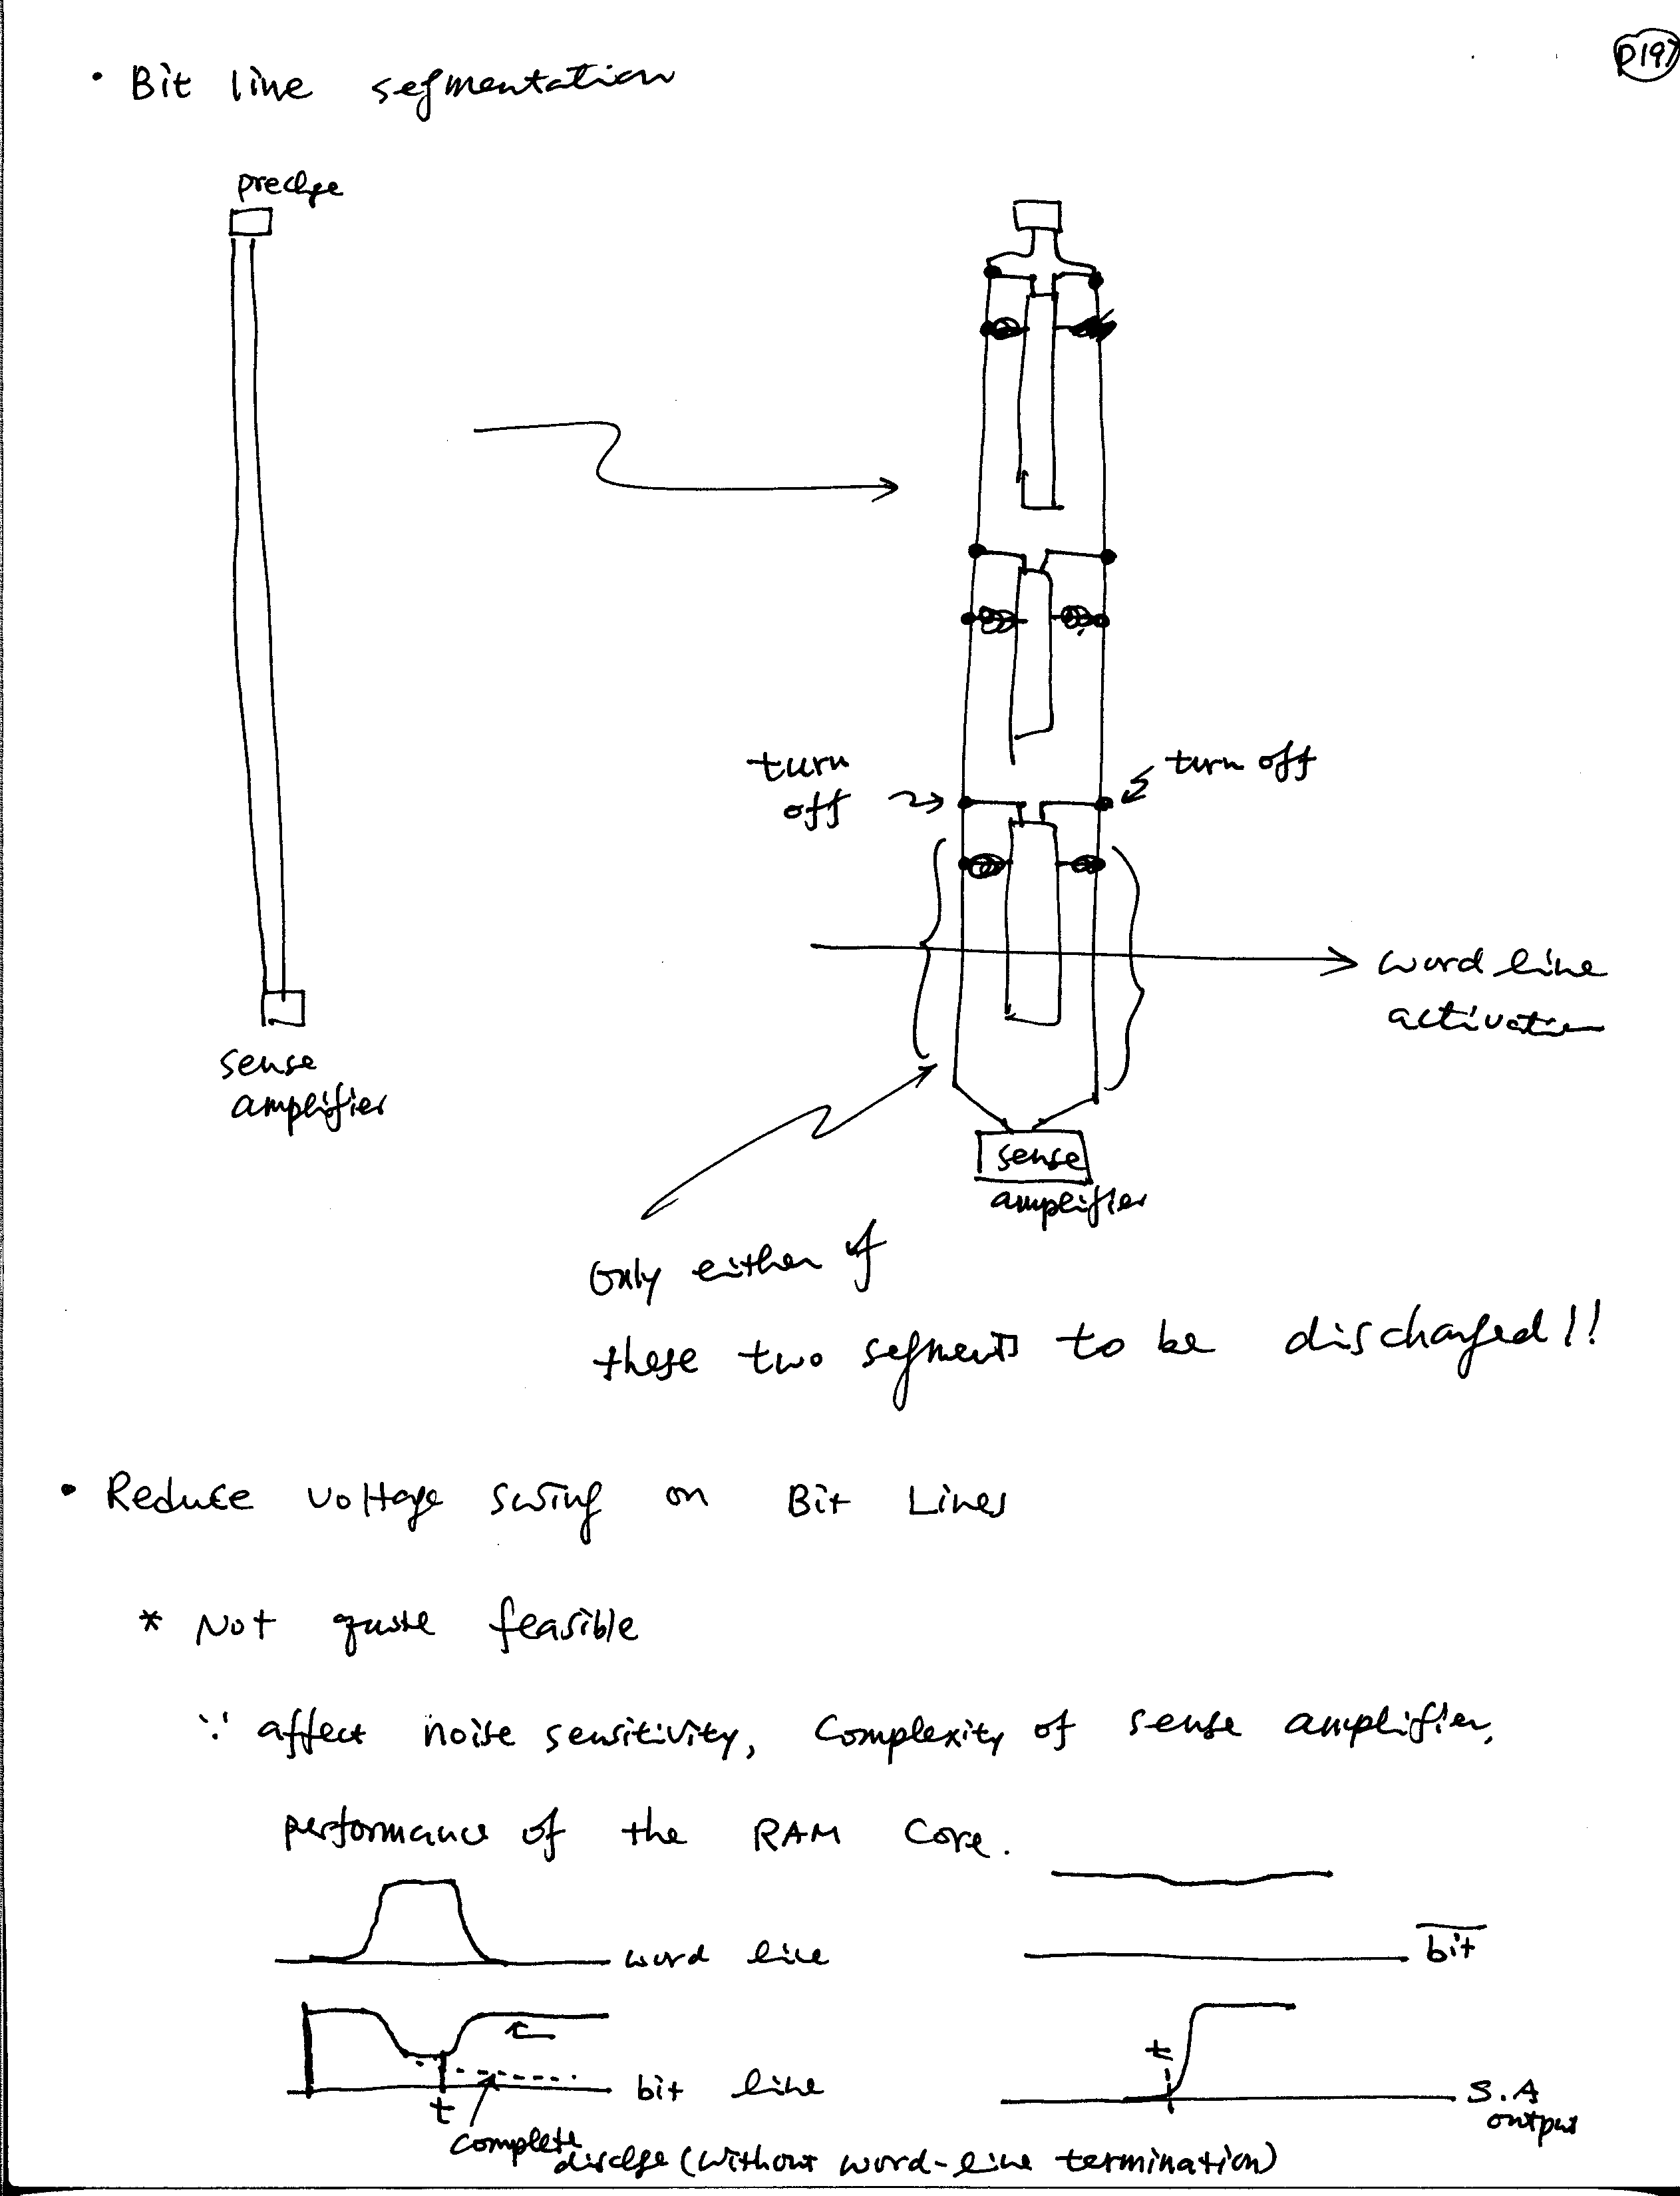 P197
• Bit line segmentation
prechge
turn
off
turn off
word line
activation
sense
amplifier
sense
amplifier
Only either of
these two segments to be discharged!!
• Reduce voltage swing on Bit Lines
* Not quite feasible
∵ affect noise sensitivity, Complexity of sense amplifier,
performance of the RAM Core.
word line
bit
bit line
t
t
S.A
output
complete
dischge (without word-line termination)